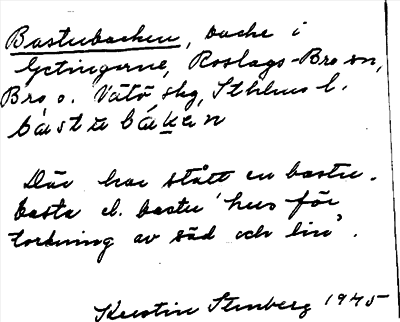 Bastubacken, backe i
Getingarne, Roslags-Bro sn,
Bro o. Vätö skg, Sthlms l.
bástabákan
Där har stått en bastu.
basta el. bastu 'hus för
torkning av säd och lin'.
Kerstin Stenberg 1945